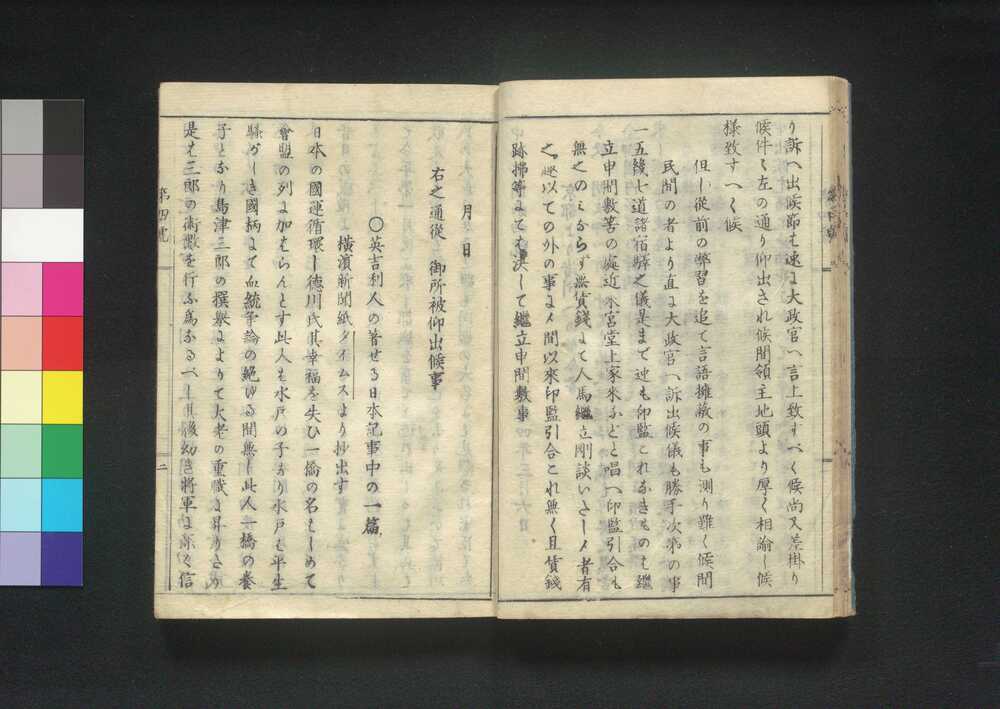 り訴へ出候節も速に大政官へ言上致すべく候尚又差掛り
候件々左の通り仰出され候間領主地頭より厚く相諭し候
様致すへく候
但し従前の弊習を追て言語擁蔽の事も測り難く候間
民間の者より直に大政官へ訴出候儀も勝手次第の事
一五畿七道諸宿駅之儀是まで迚も印鑑これなきものも継
立申間敷等の処近来宮堂上家来などと唱へ印鑑引合も
無之のみならず無賃銭にて人馬継立剛談いたしメ者有
之趣以ての外の事にメ間以来印鑑引合これ無く且賃銭
跡掃等にても決して継立申間敷事
月 日
右之通従 御所被仰出候事
○英吉利人の著せる日本記事中の一篇
横濱新聞紙タイムスより抄出す
日本の國運循環し徳川氏其幸福を失ひ一橋の名はしめて
會盟の列に加はらんとす此人も水戸の子なり水戸も平生
騒がしき國柄にて血統争論の絶ゆる間無し此人一橋の養
子となり島津三郎の撰舉によりて大老の重職に昇りたり
是も三郎の術數を行ふ為なるべし其後幼き将軍に深く信
第四號
二